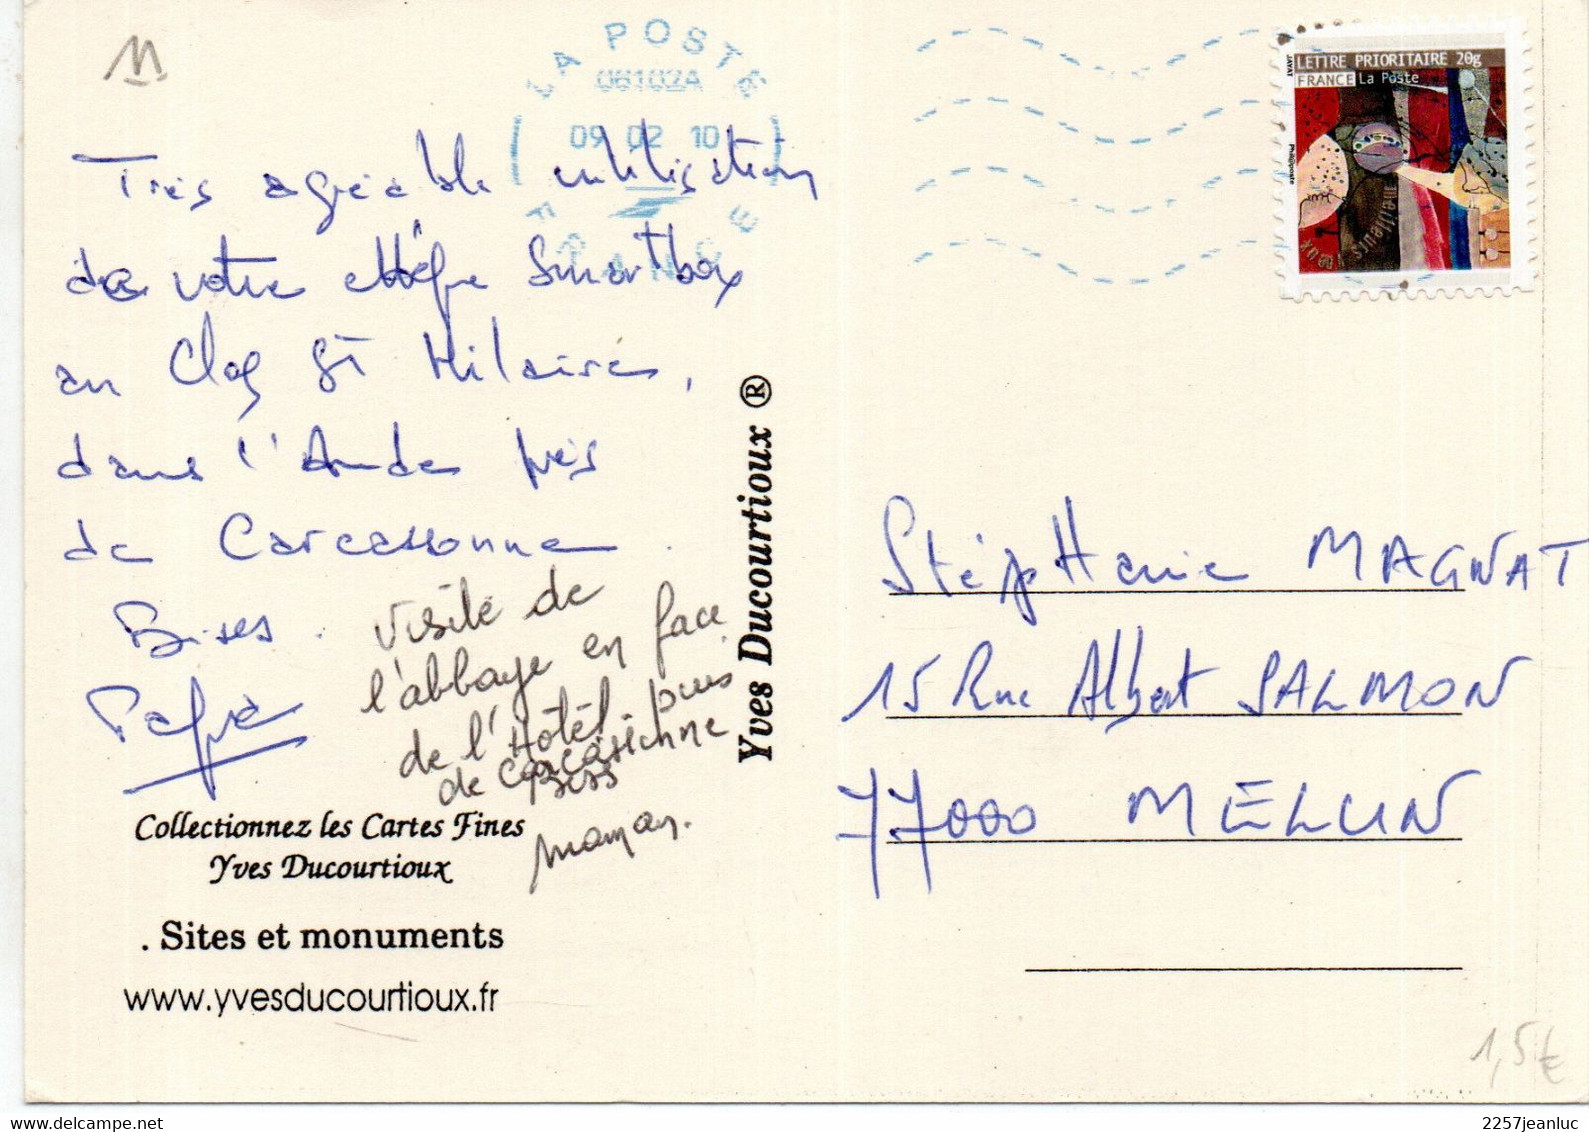 LA POSTE
06102A
09 02 10
FRANCE
LETTRE PRIORITAIRE 20g
FRANCE La Poste
JAYAT
Philaposte
meilleurs vœux
Très agréable utilisation
de votre chèque Smartbox
au Clos St Hilaire,
dans l'Aude près
de Carcassonne.
Bises.
Papa
Visite de
l'abbaye en face
de l'Hotel puis
de Carcassonne
Biss
maman.
Collectionnez les Cartes Fines
Yves Ducourtioux
. Sites et monuments
www.yvesducourtioux.fr
Yves Ducourtioux ®
StépHanie MAGNAT
15 Rue Albert SALMON
77000 MELUN
1,5€
2257jeanluc